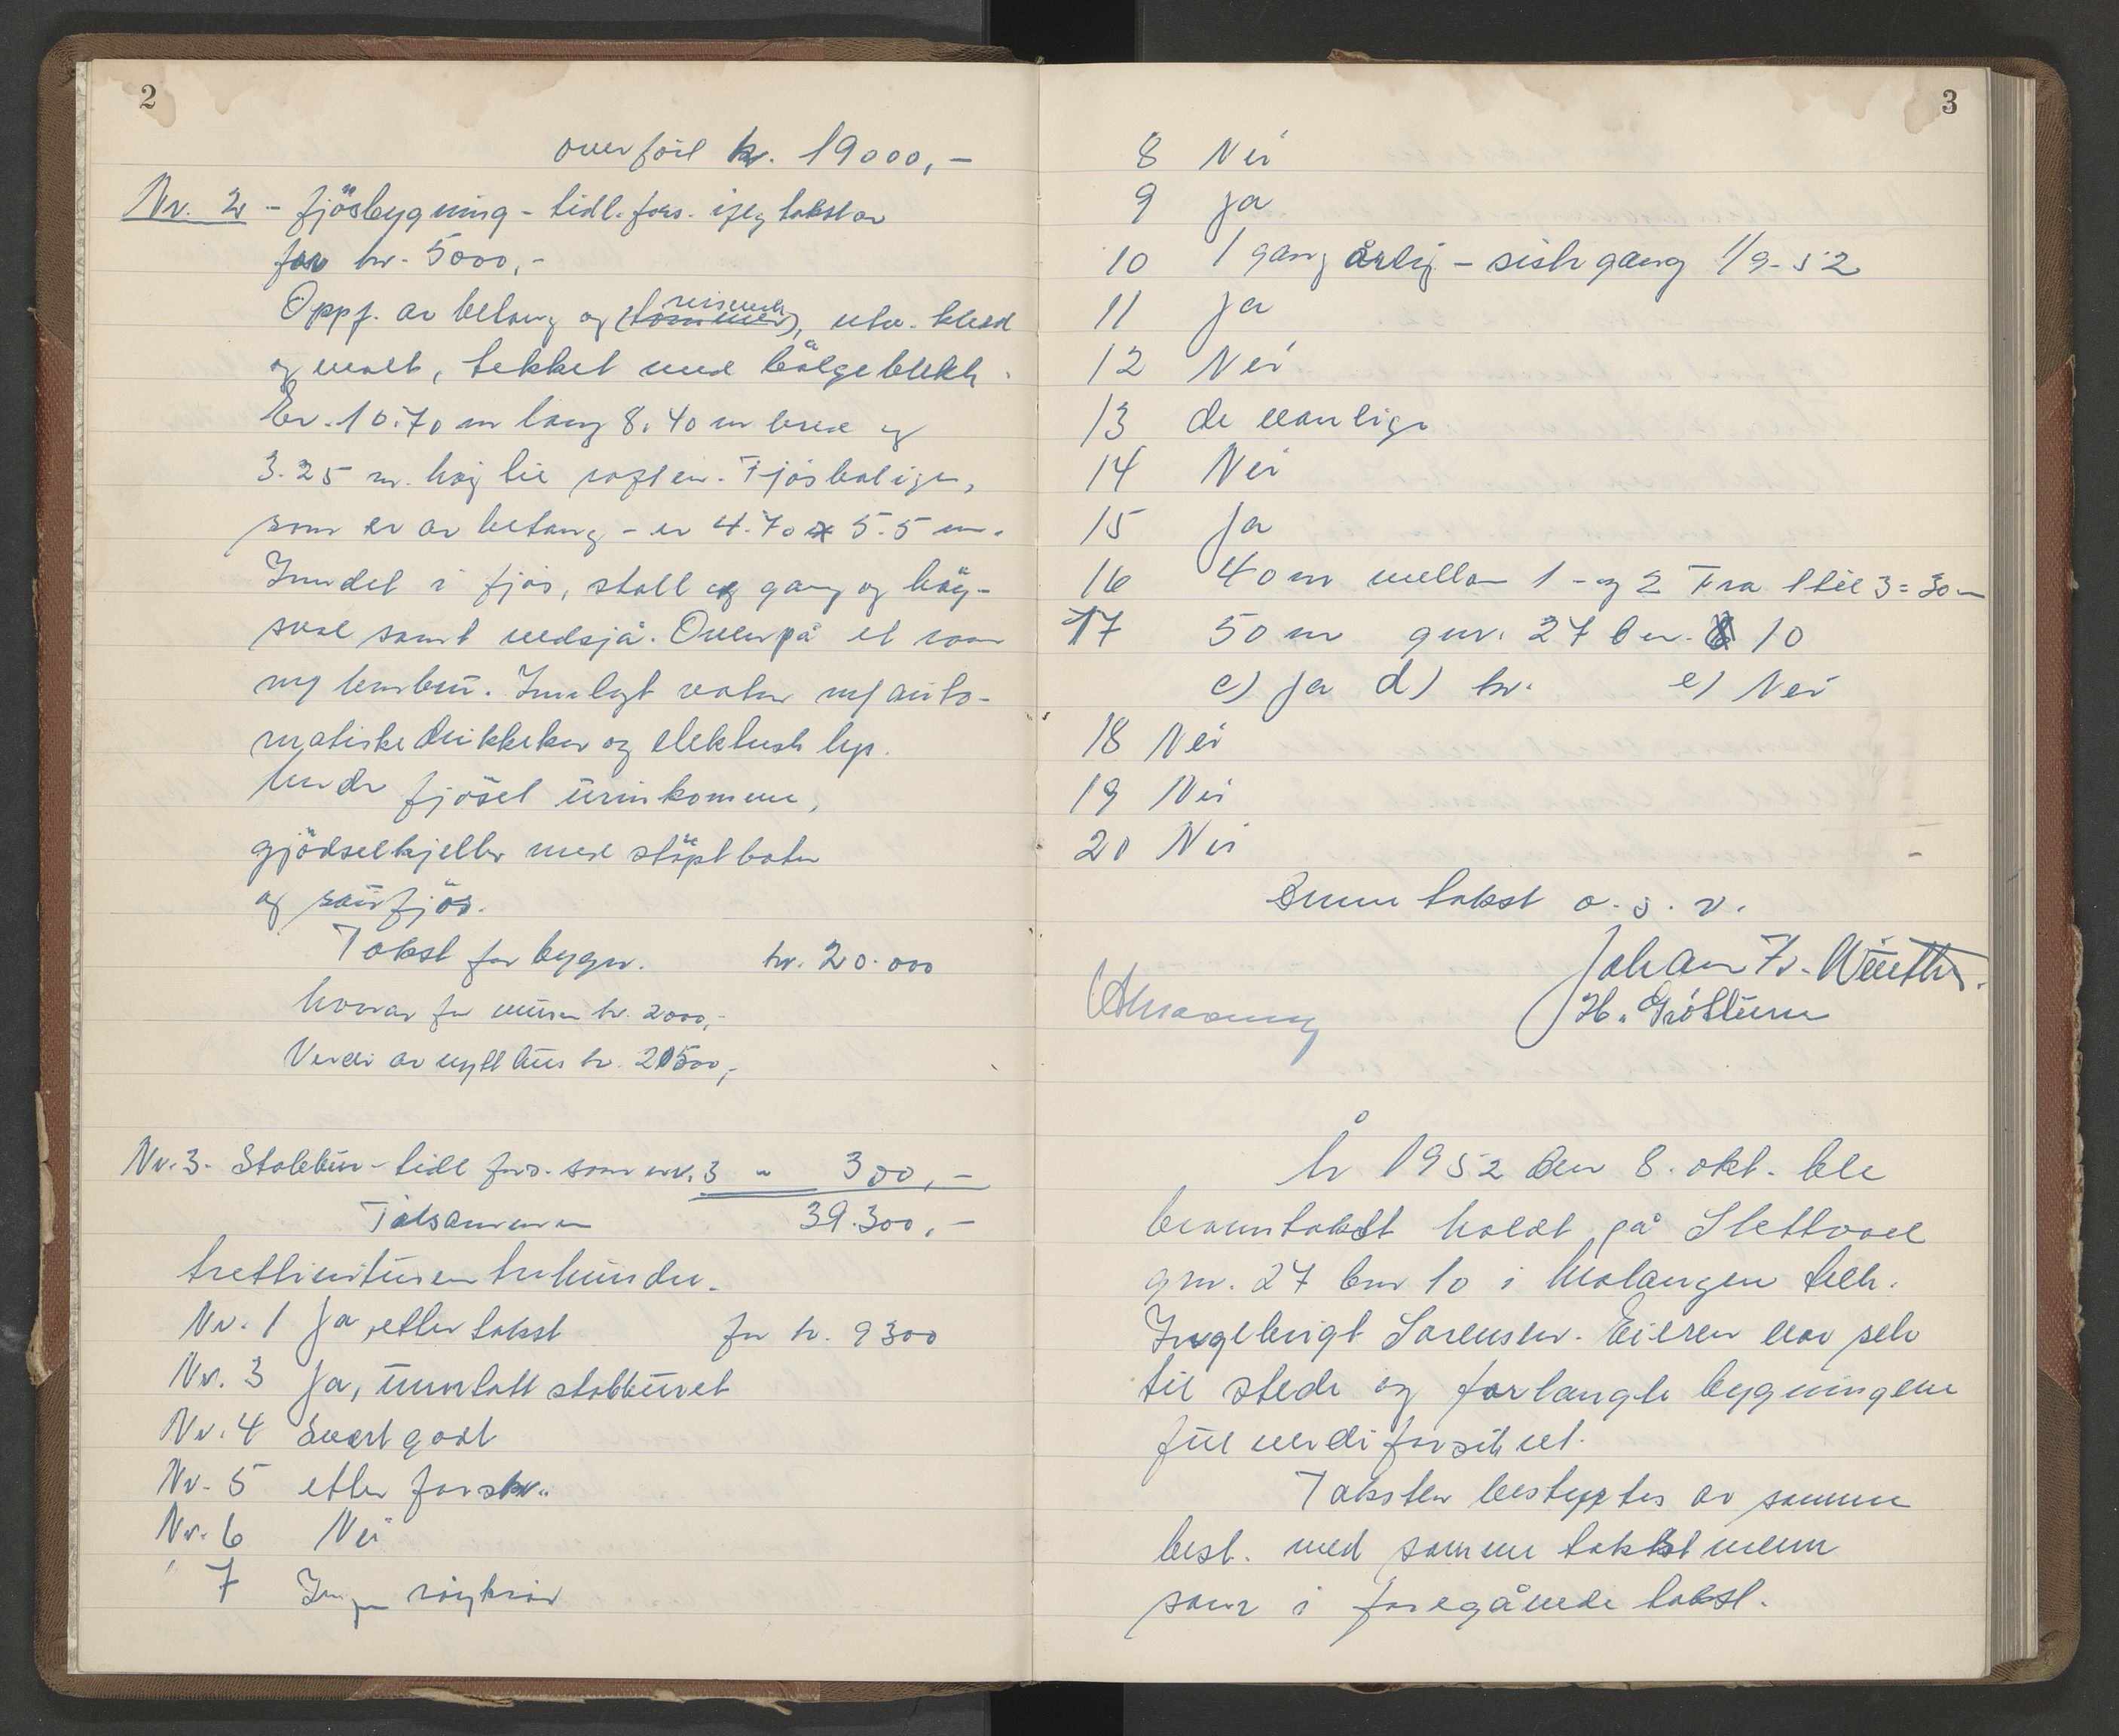 2
overført kr. 19000,-
Nr. 2 - fjøsbygning - tidl. fors. iflg takst av
for kr. 5000,-
Oppf. av betong og (tømmer) reisverk, utv. kledd
og malt, tekket med bølgeblekk.
Er. 10.70 m lang 8.40 m bred og
3.25 m. høy til raften. Fjøsboligen,
som er av betong - er 4.70 x 5.5 m.
Inndel i fjøs, stall og gang og høy-
sval samt vedsjå. Ovenpå et rom
m/ tembru. Innlagt vatn m/ auto-
matiske drikkekar og elektrisk lys.
Under fjøset urinkomme,
gjødselkjeller med støpt botn
og saufjøs.
Takst for bygn. kr. 20.000
hvorav for muren kr. 2000,-
Verdi av nytt hus kr. 21500,-
Nr. 3. Stabbur - tidl fors. som nr. 3 " 300,-
Tilsammen 39.300,-
trettinitusentrehundre.
Nr. 1 Ja, etter takst for kr. 9300
Nr. 3 Ja, unntatt stabburet
Nr. 4 Svært godt
Nr. 5 etter forskr.
Nr. 6 Nei
" 7 Ingen røykrør
3
8 Nei
9 Ja
10 1 gang årlig - siste gang 1/9-52
11 Ja
12 Nei
13 de vanlige
14 Nei
15 Ja
16 40 m mellom 1 - og 2 Fra 1 til 3 = 30 m
17 50 m gnr. 27 bnr. 10
c) Ja d) kr. e) Nei
18 Nei
19 Nei
20 Nei
Denne takst o. s. v.
Johan Fr.
H. Grøttum
År 1952 den 8. okt. ble
branntakst holdt på Slettvoll
gnr. 27 bnr 10 i Malangen tilh.
Ingebrigt Sørensen. Eieren var selv
til stede og forlangte bygningene
full verdiforsikret.
Taksten bestyrtes av samme
best. med samme takstmenn
som i foregående takst.